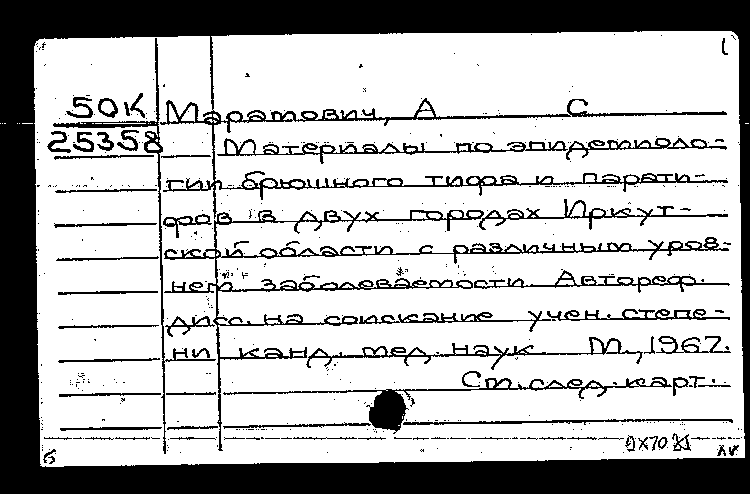 1
50К Маратович, А С
25358 Материалы по эпидемиоло-
гии брюшного тифа и парати-
фов в двух городах Иркут-
ской области с различным уров-
нем заболеваемости. Автореф.
дисс. на соискание учен. степе-
ни канд. мед. наук. М., 1967.
См. след. карт.
б